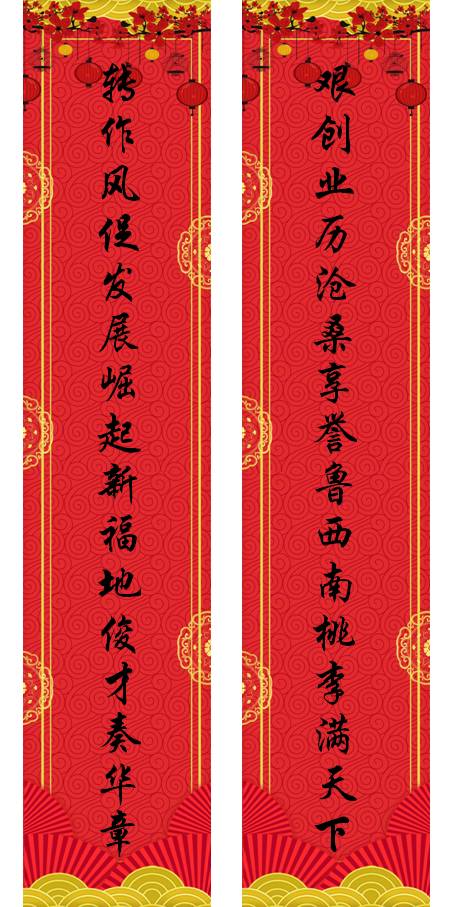 艰创业历沧桑享誉鲁西南桃李满天下
转作风促发展崛起新福地俊才奏华章